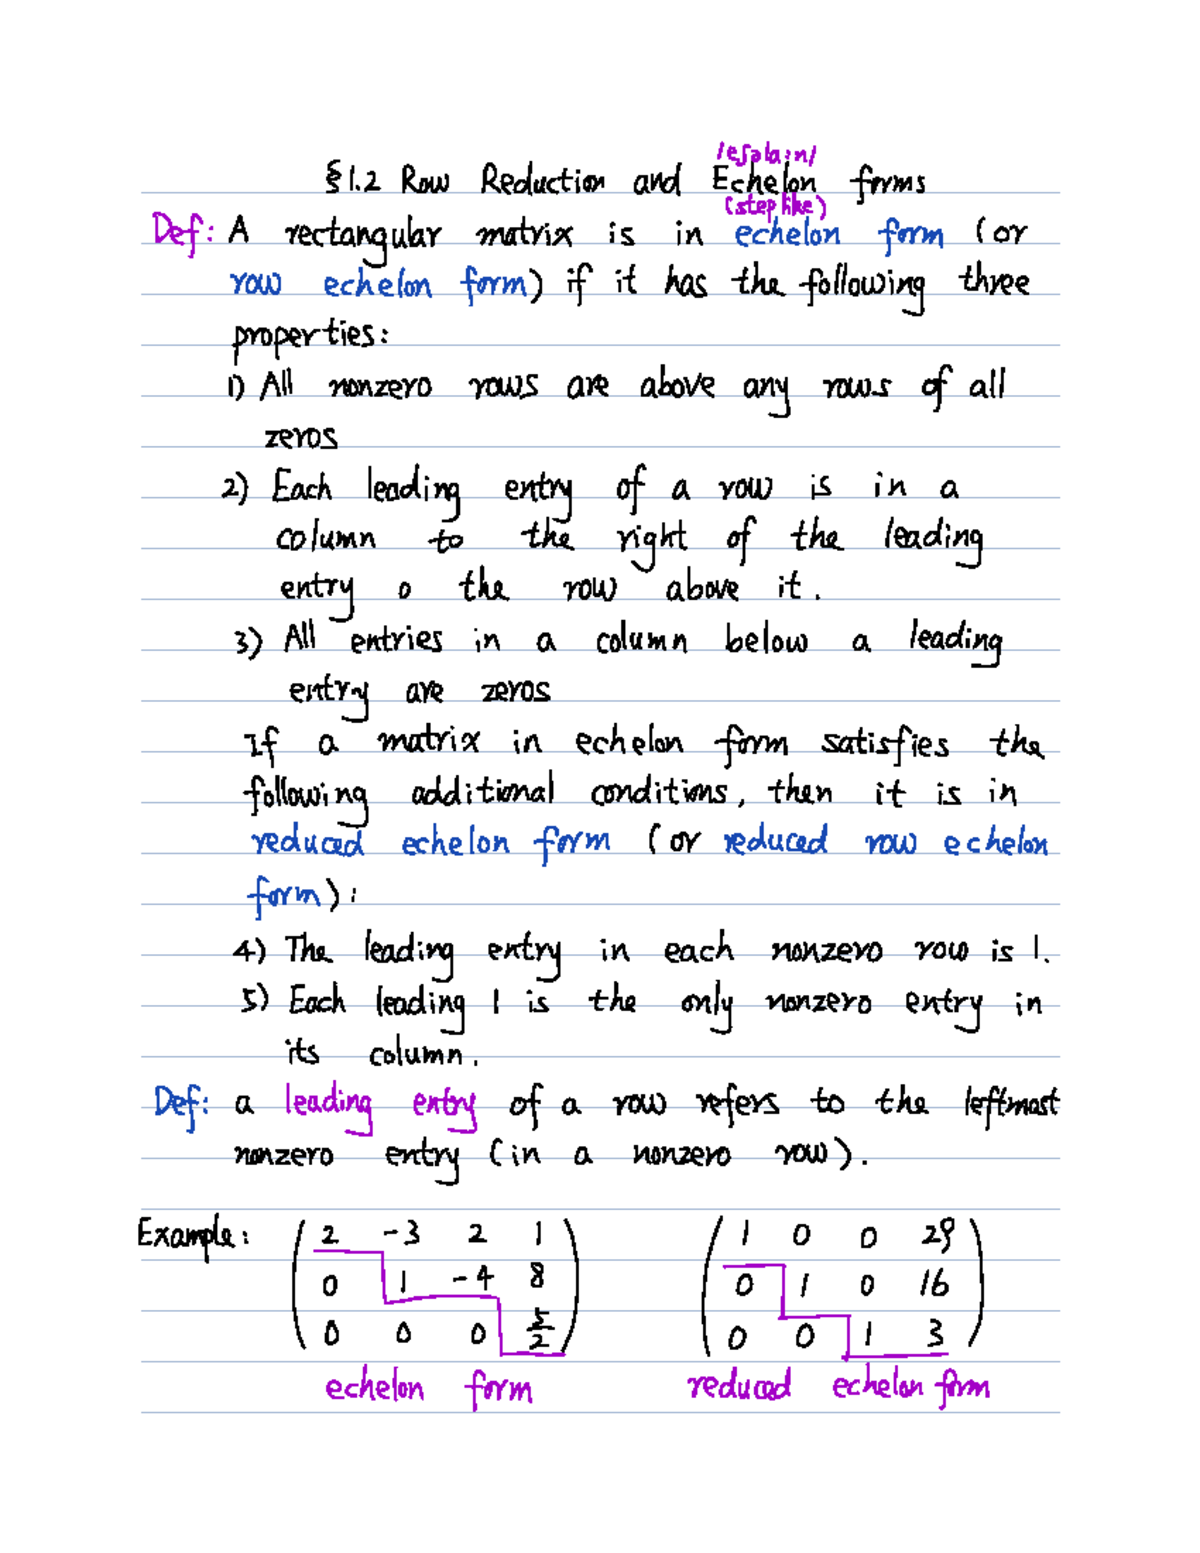 /eʃəla:n/
§1.2 Row Reduction and Echelon forms
(step like)
Def: A rectangular matrix is in echelon form (or
row echelon form) if it has the following three
properties:
1) All nonzero rows are above any rows of all
zeros
2) Each leading entry of a row is in a
column to the right of the leading
entry o the row above it.
3) All entries in a column below a leading
entry are zeros
If a matrix in echelon form satisfies the
following additional conditions, then it is in
reduced echelon form (or reduced row echelon
form):
4) The leading entry in each nonzero row is 1.
5) Each leading 1 is the only nonzero entry in
its column.
Def: a leading entry of a row refers to the leftmost
nonzero entry (in a nonzero row).
Example: ( 2 -3 2 1 ) ( 1 0 0 29 )
0 1 -4 8 0 1 0 16
0 0 0 5/2 0 0 1 3
echelon form reduced echelon form